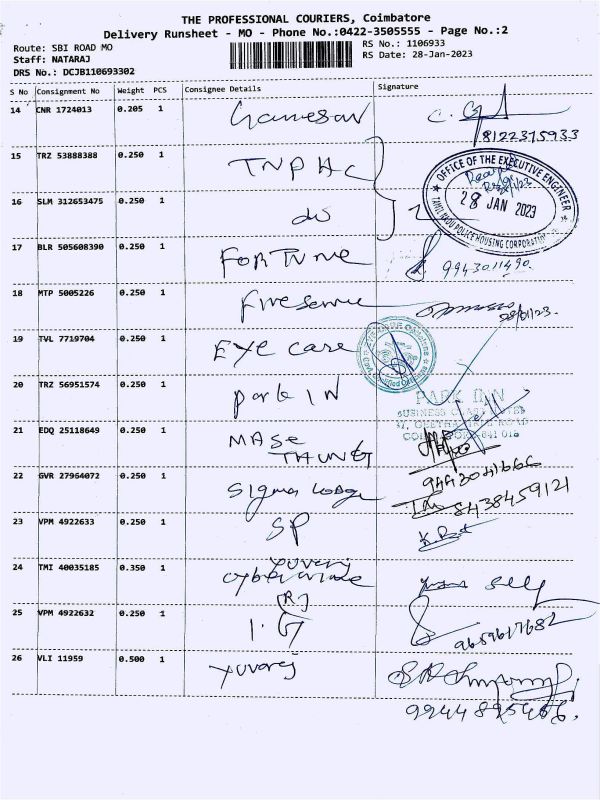 THE PROFESSIONAL COURIERS, Coimbatore
Delivery Runsheet - MO - Phone No.:0422-3505555 - Page No.:2
Route: SBI ROAD MO
RS No.: 1106933
Staff: NATARAJ
RS Date: 28-Jan-2023
DRS No.: DCJB110693302
S No Consignment No Weight PCS Consignee Details Signature
14 CNR 1724013 0.205 1
8122375933
15 TRZ 53888388 0.250 1 TNPHC
OFFICE OF THE EXECUTIVE ENGINEER
28 JAN 2023
TAMIL NADU POLICE HOUSING CORPORATION
16 SLM 312653475 0.250 1 do
17 BLR 505608390 0.250 1 Fortune
9943011490
18 MTP 5005226 0.250 1 Fire Service
28/01/23.
19 TVL 7719704 0.250 1 Eye care
20 TRZ 56951574 0.250 1 Park IN
PARK INN
BUSINESS CLASS HOTEL
21 EDQ 25118649 0.250 1 MASE
22 GVR 27964072 0.250 1 Sigma Lodge
8438459121
23 VPM 4922633 0.250 1 SP
24 TMI 40035185 0.350 1 Yuvaraj
Cyber crime
25 VPM 4922632 0.250 1 I.G
9659617682
26 VLI 11959 0.500 1 Yuvaraj